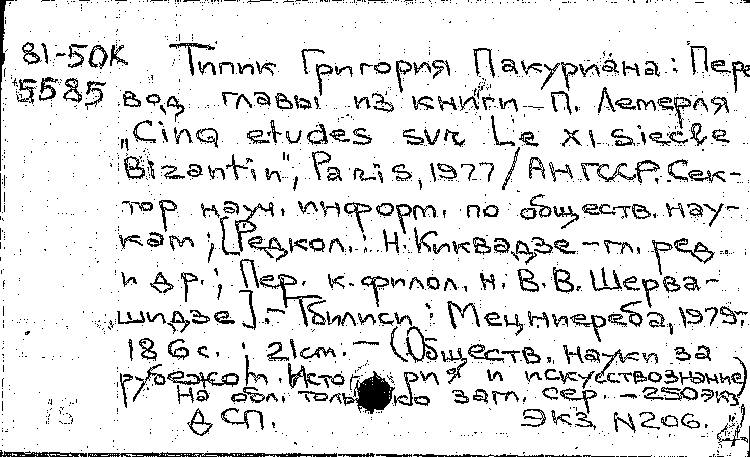 81-50К Типик Григория Пакуриана: Пере
5585 вод главы из книги П. Лемерля
„Cinq etudes sur Le XI siecle
Bizantin", Paris, 1977/АН ГССР. Сек-
тор науч. информ. по обществ. нау-
кам; [Редкол.: Н. Киквадзе – гл. ред.
и др.; Пер. к. филол. н. В. В. Шерва-
шидзе]. – Тбилиси: Мецниереба, 1979.
186с.; 21cm. – (Обществ. науки за
рубежом. Исто рия и искусствознание)
На обл. толь ко загл. сер. – 250экз
15 ДСП. ЭКЗ. N206.